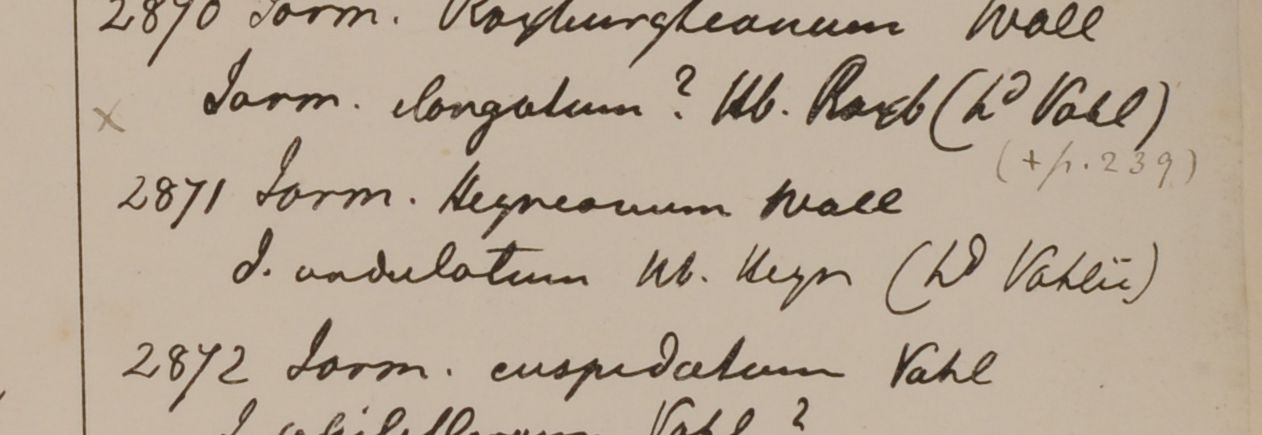 2870 Jasm. Roxburgheanum Wall
x Jasm. elongatum? Hb. Roxb ( Vahl)
(+p. 239)
2871 Jasm. Heyneanum Wall
J. undulatum Hb. Heyn ( Vahlii)
2872 Jasm. cuspidatum Vahl
J. Vahl ?